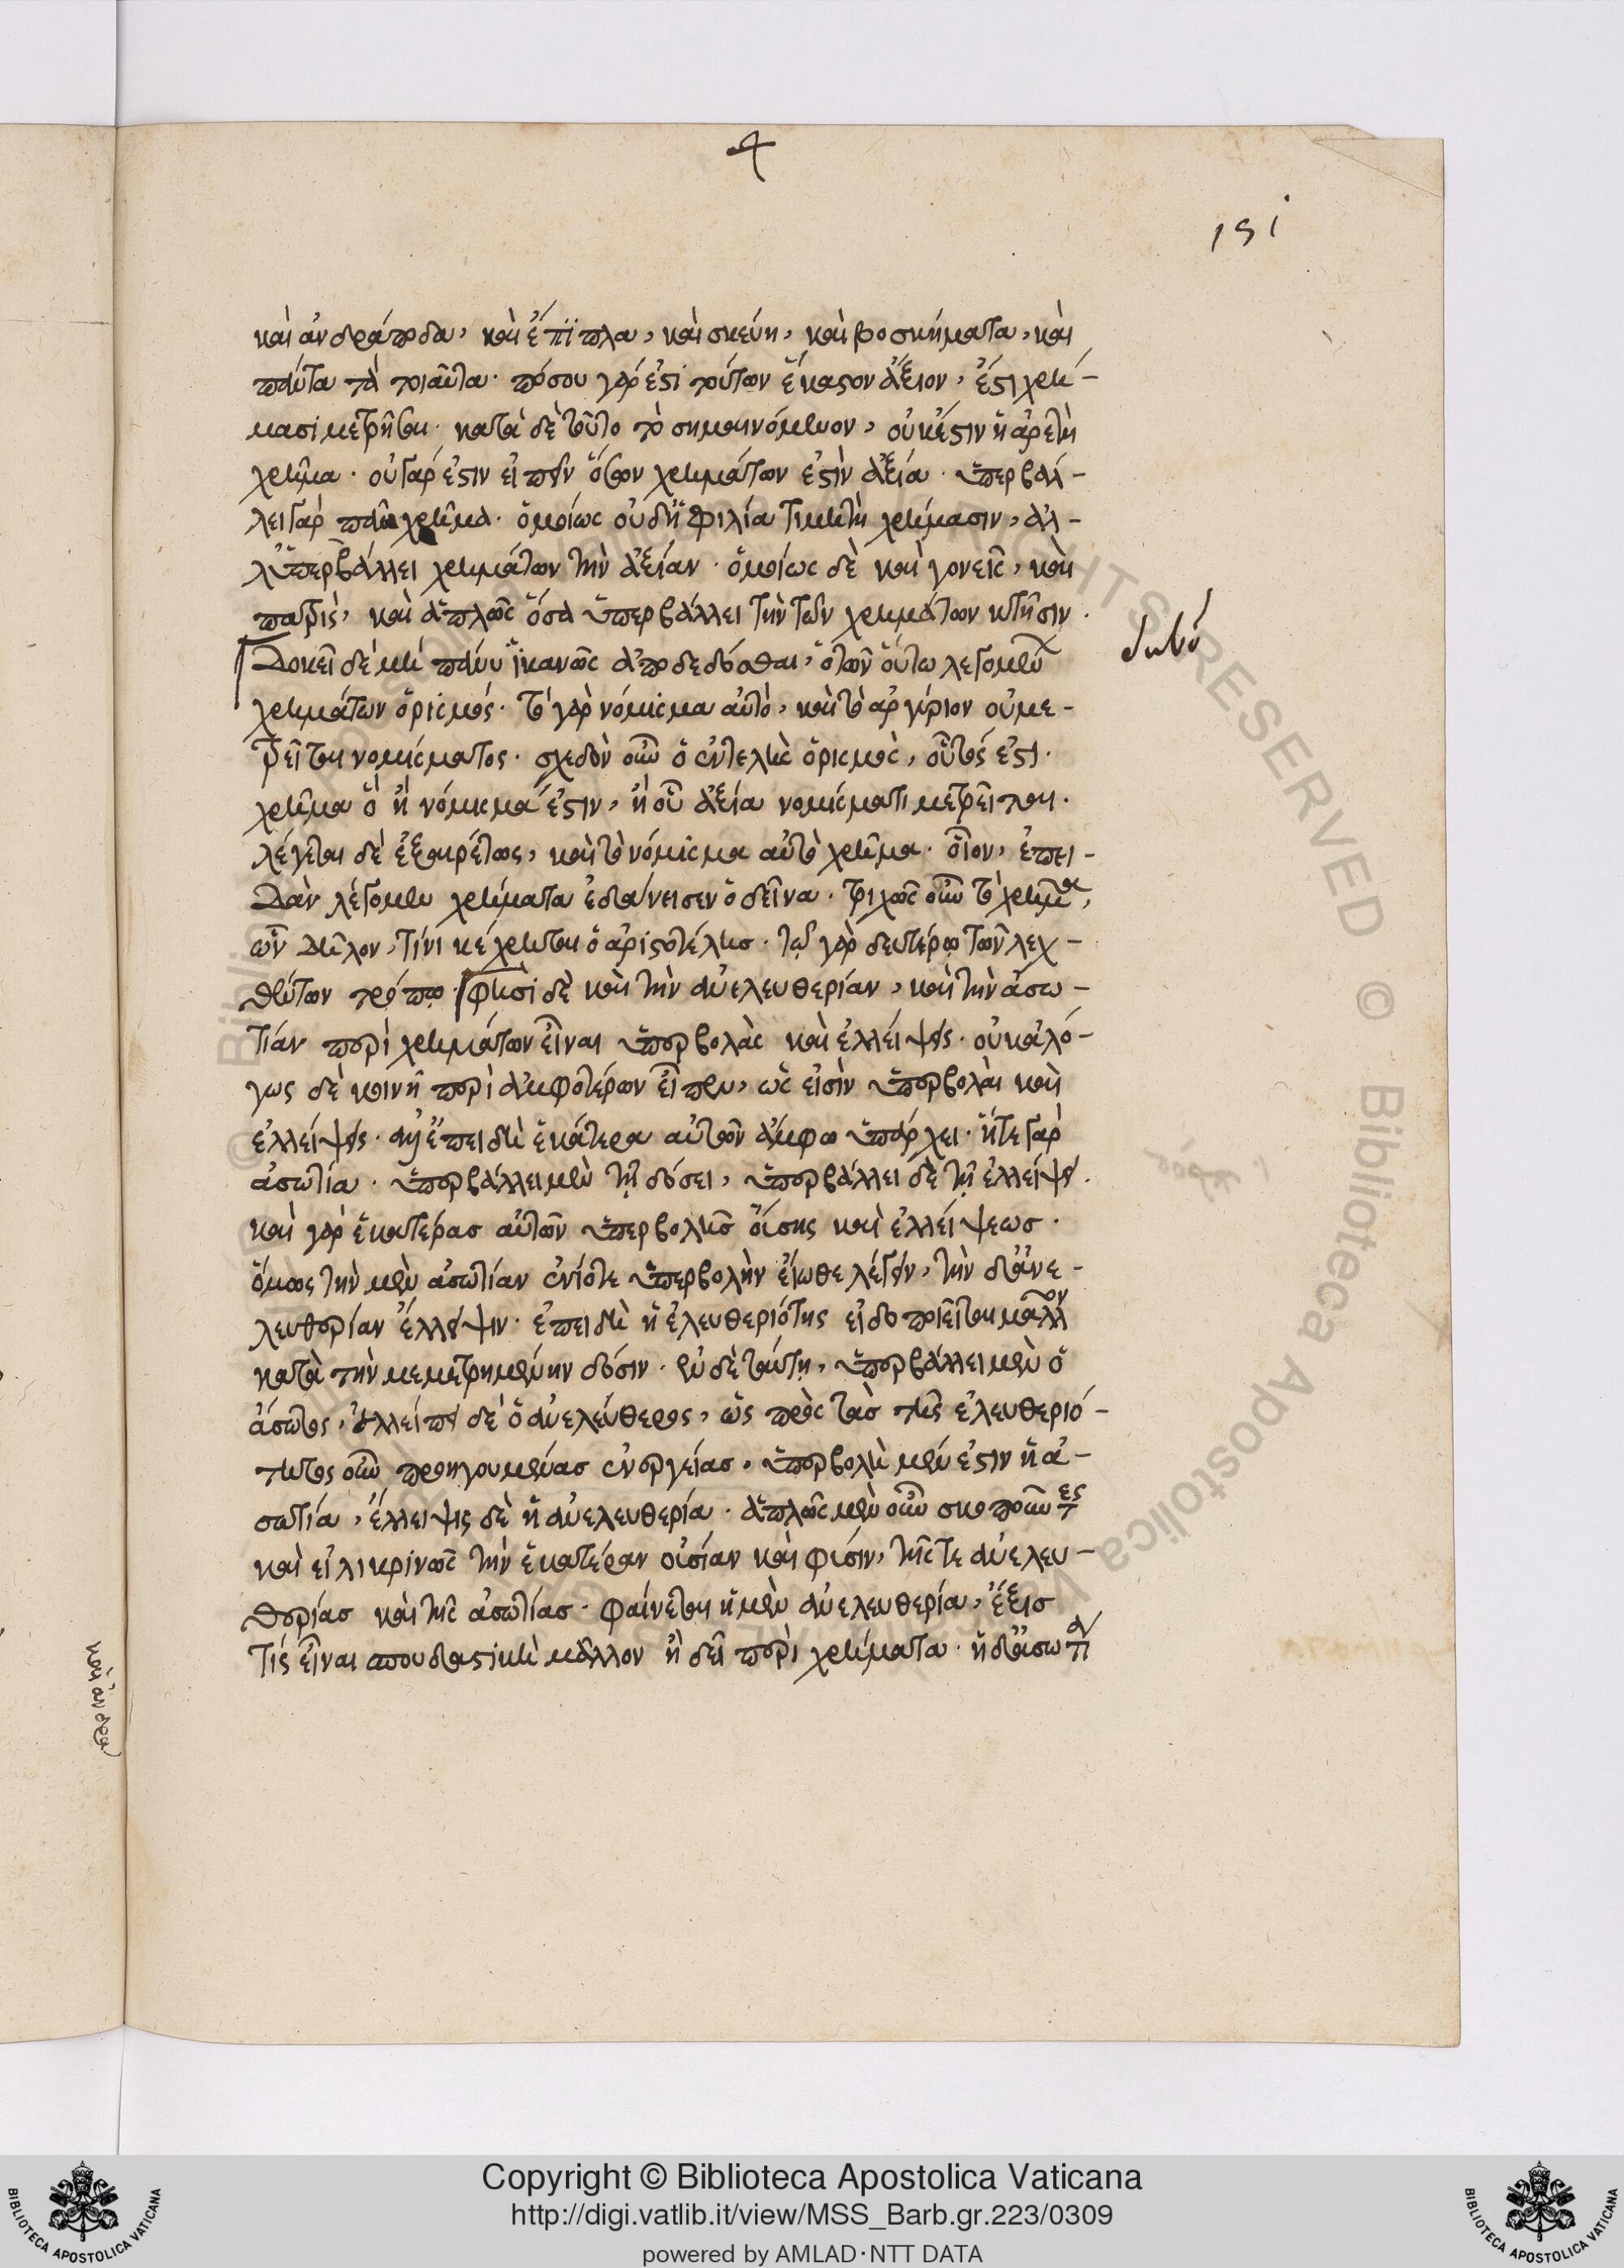 151
καὶ ἀνδράποδα, καὶ ἔπϊπλα, καὶ σκεύη, καὶ βοσκήματα, καὶ
πάντα τὰ τοιαῦτα. πόσου γάρ ἐστι τούτων ἕκαστον ἄξιον, ἔστι χρή-
μασι μετρῆσαι. κατὰ δὲ τοῦτο τὸ σημαινόμενον, οὐκέστιν ἡ ἀρετὴ
χρῆμα. οὐ γάρ ἐστιν εἰπεῖν ὅσων χρημάτων ἐστὶν ἀξία. ὑπερβάλ-
λει γὰρ πᾶν χρῆμα. ὁμοίως οὐδ' ἡ φιλία τιμητὴ χρήμασιν, ἀλ-
λ' ὑπερβάλλει χρημάτων τὴν ἀξίαν. ὁμοίως δὲ καὶ γονεῖς, καὶ
πατρὶς, καὶ ἁπλῶς ὅσα ὑπερβάλλει τὴν τῶν χρημάτων κτῆσιν.
Δοκεῖ δέ μὴ πάνυ ἱκανῶς ἀποδεδόσθαι, ὁ τῶν οὕτω λεγομένων
χρημάτων ὁρισμός. τό γὰρ νόμισμα αὐτὸ, καὶ τὸ ἀργύριον οὐ με-
τρεῖται νομίσματος. σχεδὸν οὖν ὁ ἐντελὴς ὁρισμὸς, οὗτός ἐστι.
χρῆμα ὅ ἢ νόμισμά ἐστιν, ἢ οὗ ἀξία νομίσματι μετρεῖται.
λέγεται δὲ ἐξαιρέτως, καὶ τὸ νόμισμα αὐτὸ χρῆμα. οἷον, ἐπει-
δὰν λέγομεν χρήματα ἐδάνεισεν ὁ δεῖνα. τριχῶς οὖν τὸ χρῆμα,
ὧν δῆλον, τίνι κέχρηται ὁ ἀριστοτέλησ. τῷ γὰρ δευτέρῳ τῶν λεχ-
θέντων τρόπῳ. φησὶ δὲ καὶ τὴν ἀνελευθερίαν, καὶ τὴν ἀσω-
τίαν περὶ χρημάτων εἶναι ὑπερβολὰς καὶ ἐλλείψεις. οὐκ ἀλό-
γως δὲ κοινῆ περὶ ἀμφοτέρων εἶπεν, ὡς εἰσὶν ὑπερβολαὶ καὶ
ἐλλείψεις. ἐπειδὴ ἑκάτερα αὐτῶν ἄμφω ὑπάρχει. ἥτε γὰρ
ἀσωτία. ὑπερβάλλει μὲν τῇ δόσει, ὑπερβάλλει δὲ τῇ ἐλλείψει.
καὶ γὰρ ἑκατέρασ αὐτῶν ὑπερβολῆσ οὔσης καὶ ἐλλείψεωσ.
ὅμως τὴν μὲν ἀσωτίαν ἐνίοτε ὑπερβολὴν εἴωθε λέγειν, τὴν δ' ἀνε-
λευθερίαν ἔλλειψιν. ἐπειδὴ ἡ ἐλευθεριότης εἰδοποιεῖται μᾶλλον
κατὰ τὴν μεμετρημένην δόσιν. ἐν δὲ ταύτῃ, ὑπερβάλλει μὲν ὁ
ἄσωτος, ἐλλείπει δὲ ὁ ἀνελεύθερος, ὡς πρὸς τὰσ τῆς ἐλευθεριό-
τητος οὖν προηγουμένασ ἐνεργείασ, ὑπερβολὴ μέν ἐστιν ἡ ἀ-
σωτία, ἔλλειψις δὲ ἡ ἀνελευθερία. ἁπλῶς μὲν οὖν σκοποῦντες
καὶ εἰλικρινῶς τὴν ἑκατέραν οὐσίαν καὶ φύσιν, τῆς τε ἀνελευ-
θερίασ καὶ τῆς ἀσωτίασ. φαίνεται ἡ μὲν ἀνελευθερία, ἕξισ
τίς εἶναι σπουδαστικὴ μᾶλλον ἢ δεῖ περὶ χρήματα. ἡ δ' ἀσωτία
καὶ ἀνδρα
Copyright © Biblioteca Apostolica Vaticana
http://digi.vatlib.it/view/MSS_Barb.gr.223/0309
powered by AMLAD·NTT DATA
BIBLIOTECA APOSTOLICA VATICANA
BIBLIOTECA APOSTOLICA VATICANA